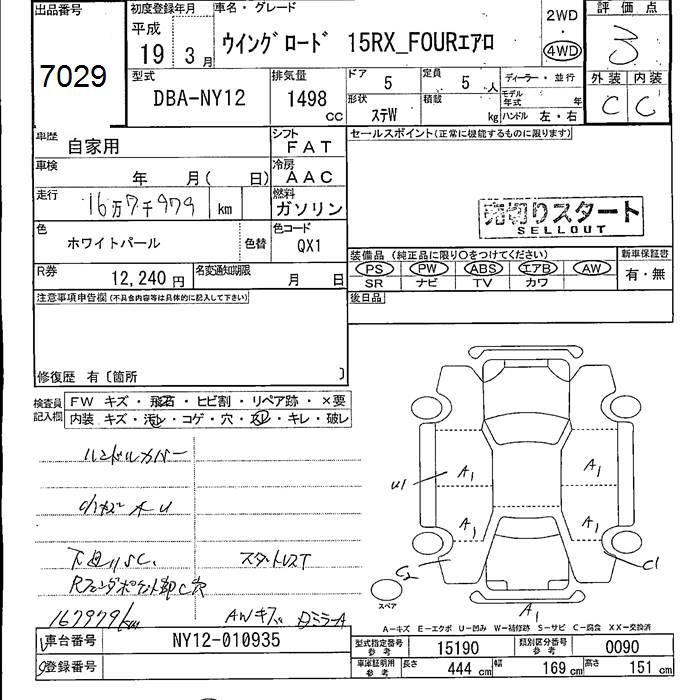 出品番号
7029
初度登録年月
平成
19年 3月
車名・グレード
ウイングロード 15RX_FOURエアロ
2WD
・
4WD
評価点
3
外装 内装
C C
型式
DBA-NY12
排気量
1498 cc
ドア 5
定員 5 人
ディーラー・並行
形状 ステW
積載 kg
モデル年式 年
ハンドル 左・右
車歴 自家用
シフト FAT
セールスポイント(正常に機能するものに限ります)
車検 年 月( 日)
冷房 AAC
走行 16万7千979 km
燃料 ガソリン
売切りスタート
SELLOUT
色 ホワイトパール 色替
色コード QX1
装備品(純正品に限り○をつけてください)
新車保証書
PS PW ABS エアB AW
有・無
SR ナビ TV カワ
R券 12,240円
名変通知期限 月 日
後日品
注意事項申告欄(不具合内容等は具体的に記入して下さい)
修復歴 有〔箇所 〕
検査員記入欄
FW キズ・飛石・ヒビ割・リペア跡・×要
内装 キズ・汚レ・コゲ・穴・スレ・キレ・破レ
ハンドルカバー
下廻りSC.
スタットレスT
167979km
AWキズ
DミラーA
U1
A1
A1
A1
A1
C2
C1
A1
スペア
A-キズ E-エクボ U-凹み W-補修跡 S-サビ C-腐食 XX-交換済
車台番号 NY12-010935
登録番号
型式指定番号 参考 15190
類別区分番号 参考 0090
車庫証明用 参考 長さ 444 cm 幅 169 cm 高さ 151 cm